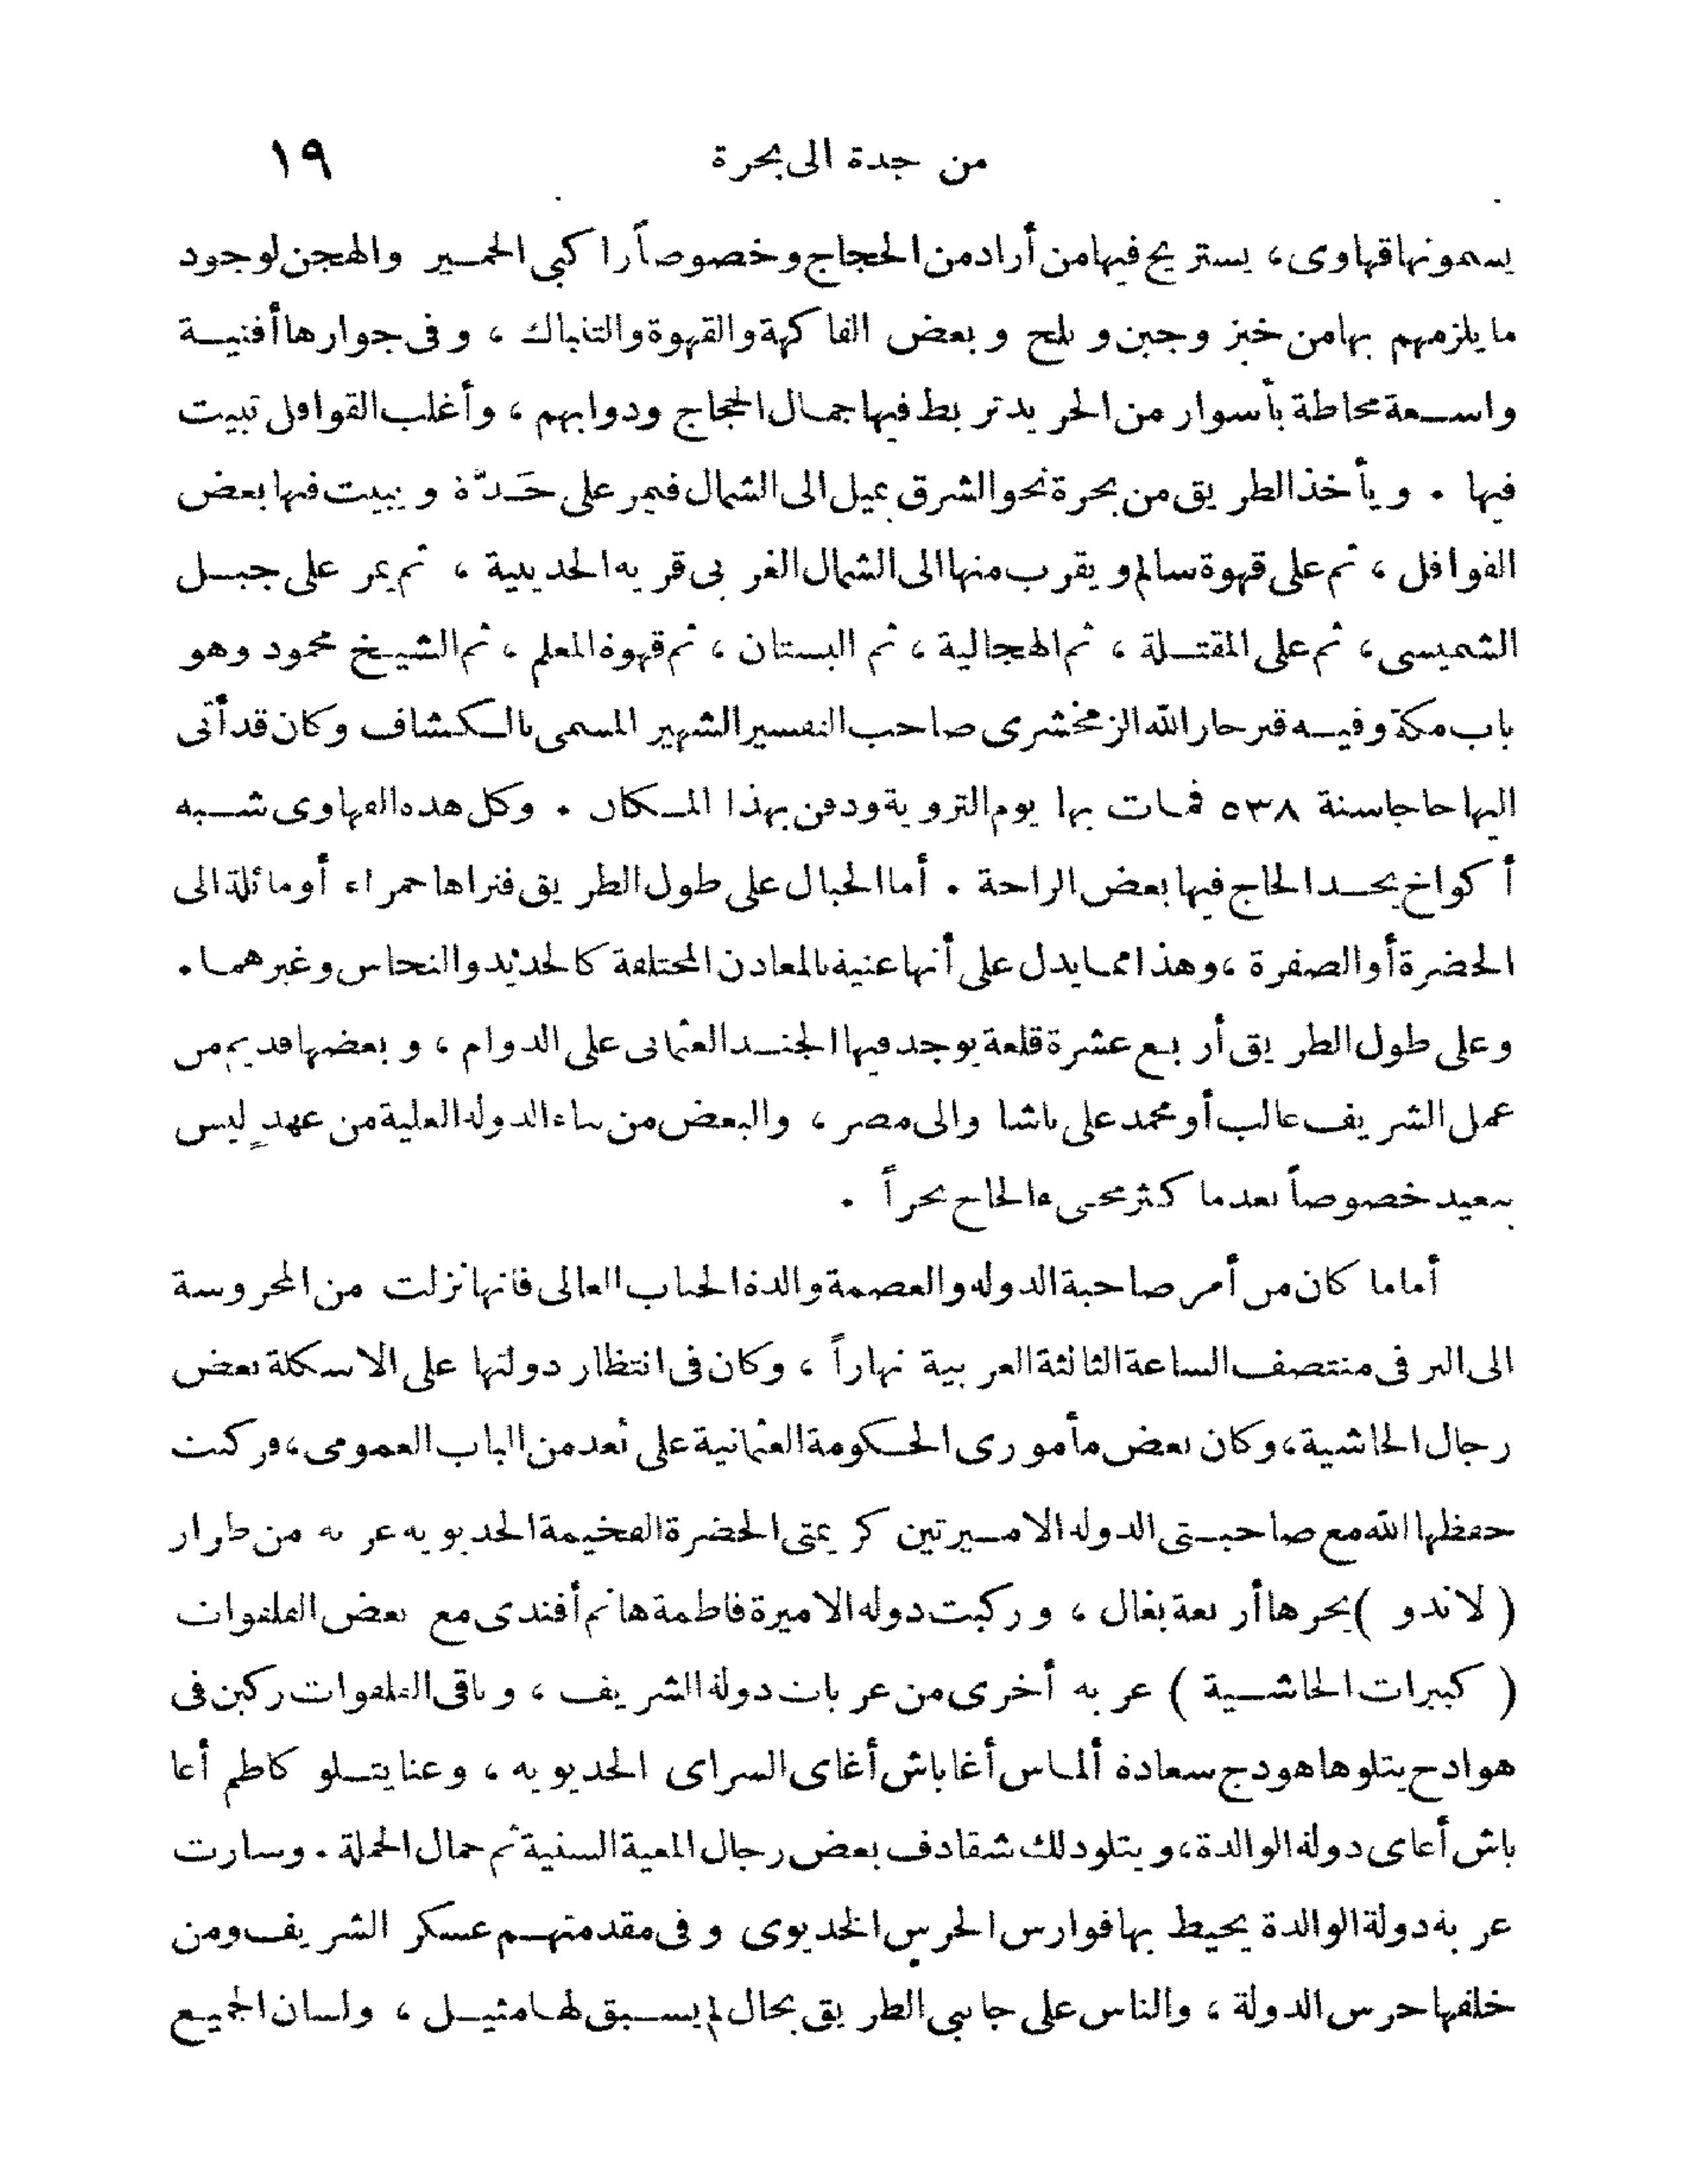 من جدة الى بحرة ١٩
يسمونها قهاوى، يستريح فيها من أراد من الحجاج وخصوصاً راكبى الحمير والهجن لوجود
ما يلزمهم بها من خبز وجبن وبلح وبعض الفاكهة والقهوة والتنباك ، وفى جوارها أفنية
واسعة محاطة بأسوار من الحريد تربط فيها جمال الحجاج ودوابهم ، وأغلب القوافل تبيت
فيها . ويأخذ الطريق من بحرة نحو الشرق بميل الى الشمال فيمر على حَدّة ويبيت فيها بعض
القوافل ، ثم على قهوة سالم ويقرب منها الى الشمال الغربى قرية الحديبية ، ثم يمر على جبل
الشميسى، ثم على المقتلة ، ثم الهجالية ، ثم البستان ، ثم قهوة المعلم ، ثم الشيخ محمود وهو
باب مكة وفيه قبر جار الله الزمخشرى صاحب التفسير الشهير المسمى بالكشاف وكان قد أتى
اليها حاجا سنة ٥٣٨ فمات بها يوم التروية ودفن بهذا المكان . وكل هذه القهاوى شبه
أكواخ يجد الحاج فيها بعض الراحة . أما الجبال على طول الطريق فنراها حمراء أو مائلة الى
الخضرة أو الصفرة ، وهذا مما يدل على أنها غنية بالمعادن المختلفة كالحديد والنحاس وغيرهما .
وعلى طول الطريق أربع عشرة قلعة يوجد فيها الجند العثمانى على الدوام ، وبعضها قديم من
عمل الشريف غالب أو محمد على باشا والى مصر ، والبعض من بناء الدولة العلية من عهدٍ ليس
ببعيد خصوصاً بعد ما كثر مجىء الحاج بحراً .
أما ما كان من أمر صاحبة الدولة والعصمة والدة الجناب العالى فانها نزلت من المحروسة
الى البر فى منتصف الساعة الثالثة العربية نهاراً ، وكان فى انتظار دولتها على الاسكلة بعض
رجال الحاشية، وكان بعض مأمورى الحكومة العثمانية على بُعد من الباب العمومى، فركبت
حفظها الله مع صاحبتى الدولة الاميرتين كريمتى الحضرة الفخيمة الخديوية عربة من طراز
( لاندو ) يجرها أربعة بغال ، وركبت دولة الاميرة فاطمة هانم أفندى مع بعض القلفوات
( كبيرات الحاشية ) عربة أخرى من عربات دولة الشريف ، وباقى القلفوات ركبن فى
هوادج يتلوها هودج سعادة ألماس أغا باش أغاى السراى الخديوية ، وعنايتلو كاظم أغا
باش أغاى دولة الوالدة، ويتلو ذلك شقادف بعض رجال المعية السنية ثم جمال الحملة . وسارت
عربة دولة الوالدة يحيط بها فوارس الحرس الخديوى وفى مقدمتهم عسكر الشريف ومن
خلفها حرس الدولة ، والناس على جانبى الطريق بحال لم يسبق لها مثيل ، ولسان الجميع